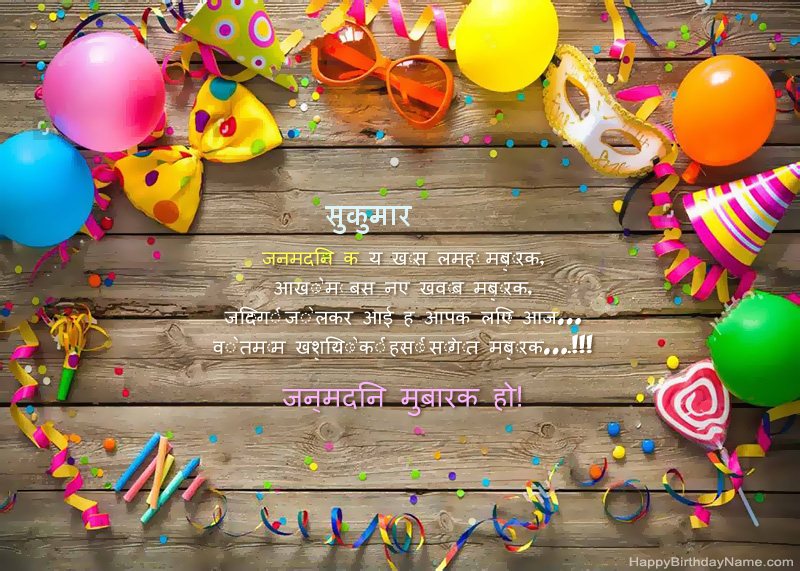 सुकुमार
जनमदनि क य खास लमह मबारक,
आखेम बस नए खवाब मबारक,
जदिगी जो लेकर आई ह आपक लएि आज...
वो तमाम खशयिो की हसी सौगात मबारक...!!!
जन्मदनि मुबारक हो!
HappyBirthdayName.com